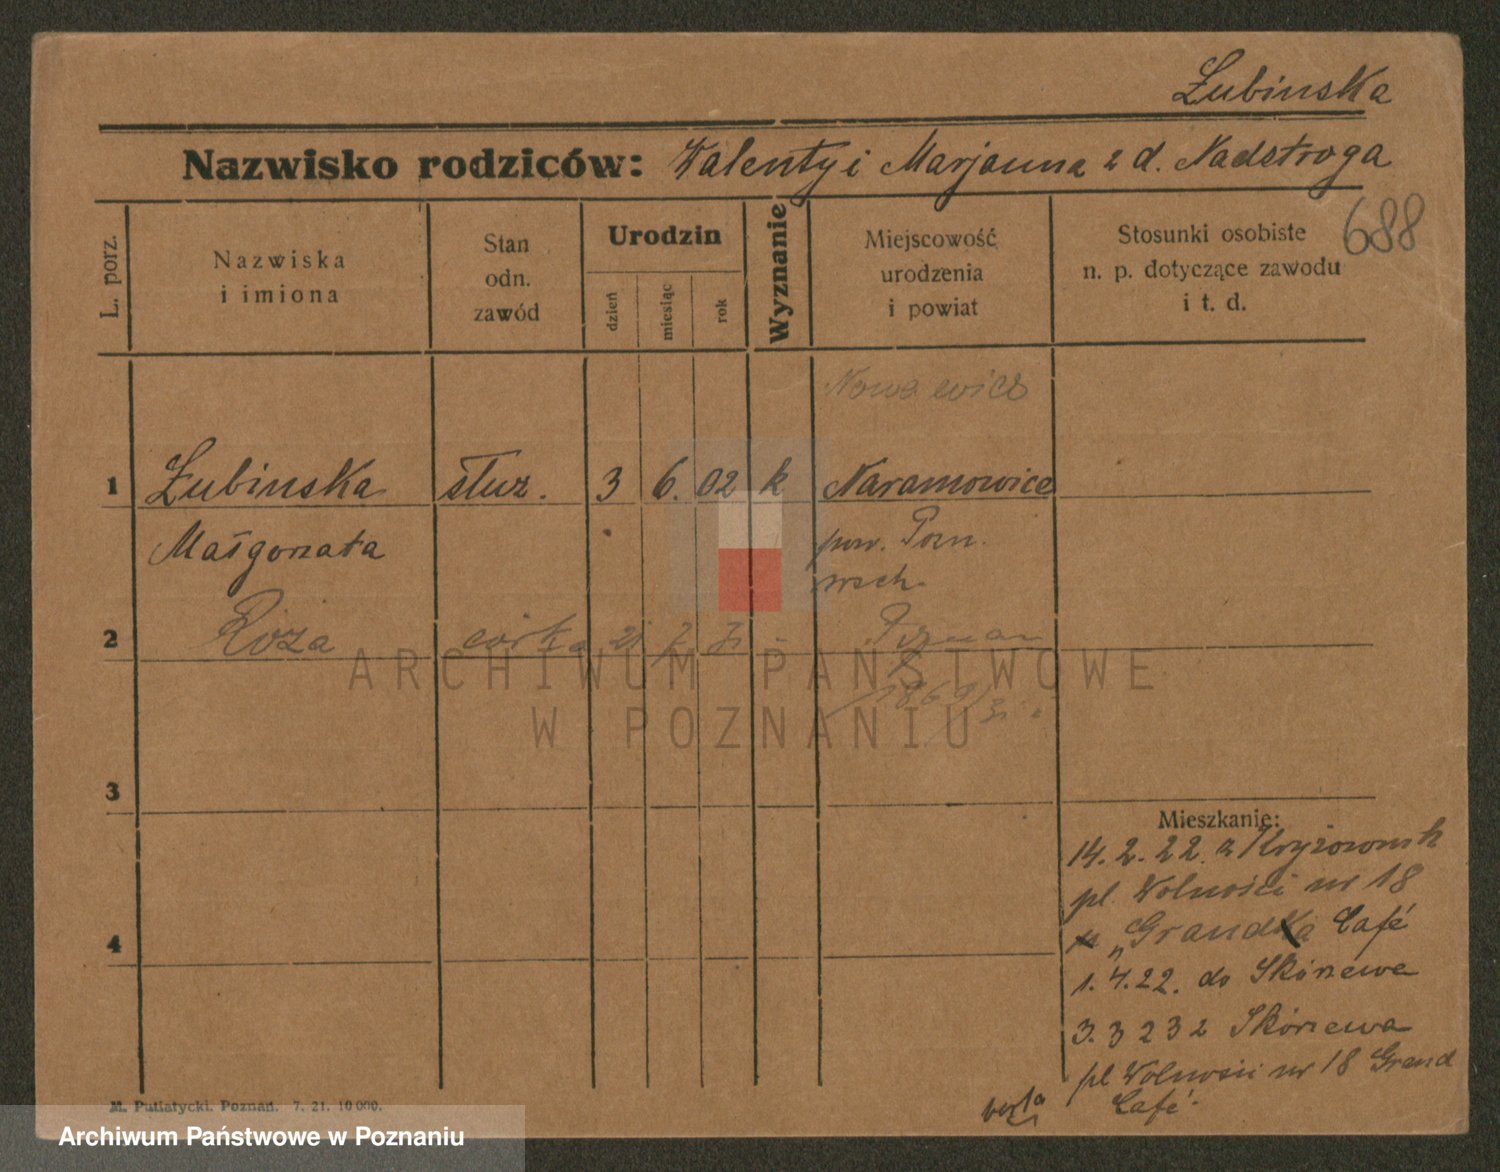 Łubinska
Nazwisko rodziców: Walenty i Marjanna z d. Nadstroga
688
L. porz.
Nazwiska
i imiona
Stan
odn.
zawód
Urodzin
dzień
miesiąc
rok
Wyznanie
Miejscowość
urodzenia
i powiat
Stosunki osobiste
n. p. dotyczące zawodu
i t. d.
1 Łubinska służ. 3 6. 02 k Naramowice
Małgorzata pow. Pozn.
wsch.
2 Róża córka 21 7 31 - Poznań
3
4
Mieszkanie:
14. 2. 22. z
pl. Wolności nr 18
„Grandka Café
1. 4. 22. do Skórzewa
3. 3 23 z Skórzewa
pl Wolności nr 18 Grand
Café
M. Putiatycki. Poznań. 7. 21. 10 000.
ARCHIWUM PAŃSTWOWE
W POZNANIU
Archiwum Państwowe w Poznaniu